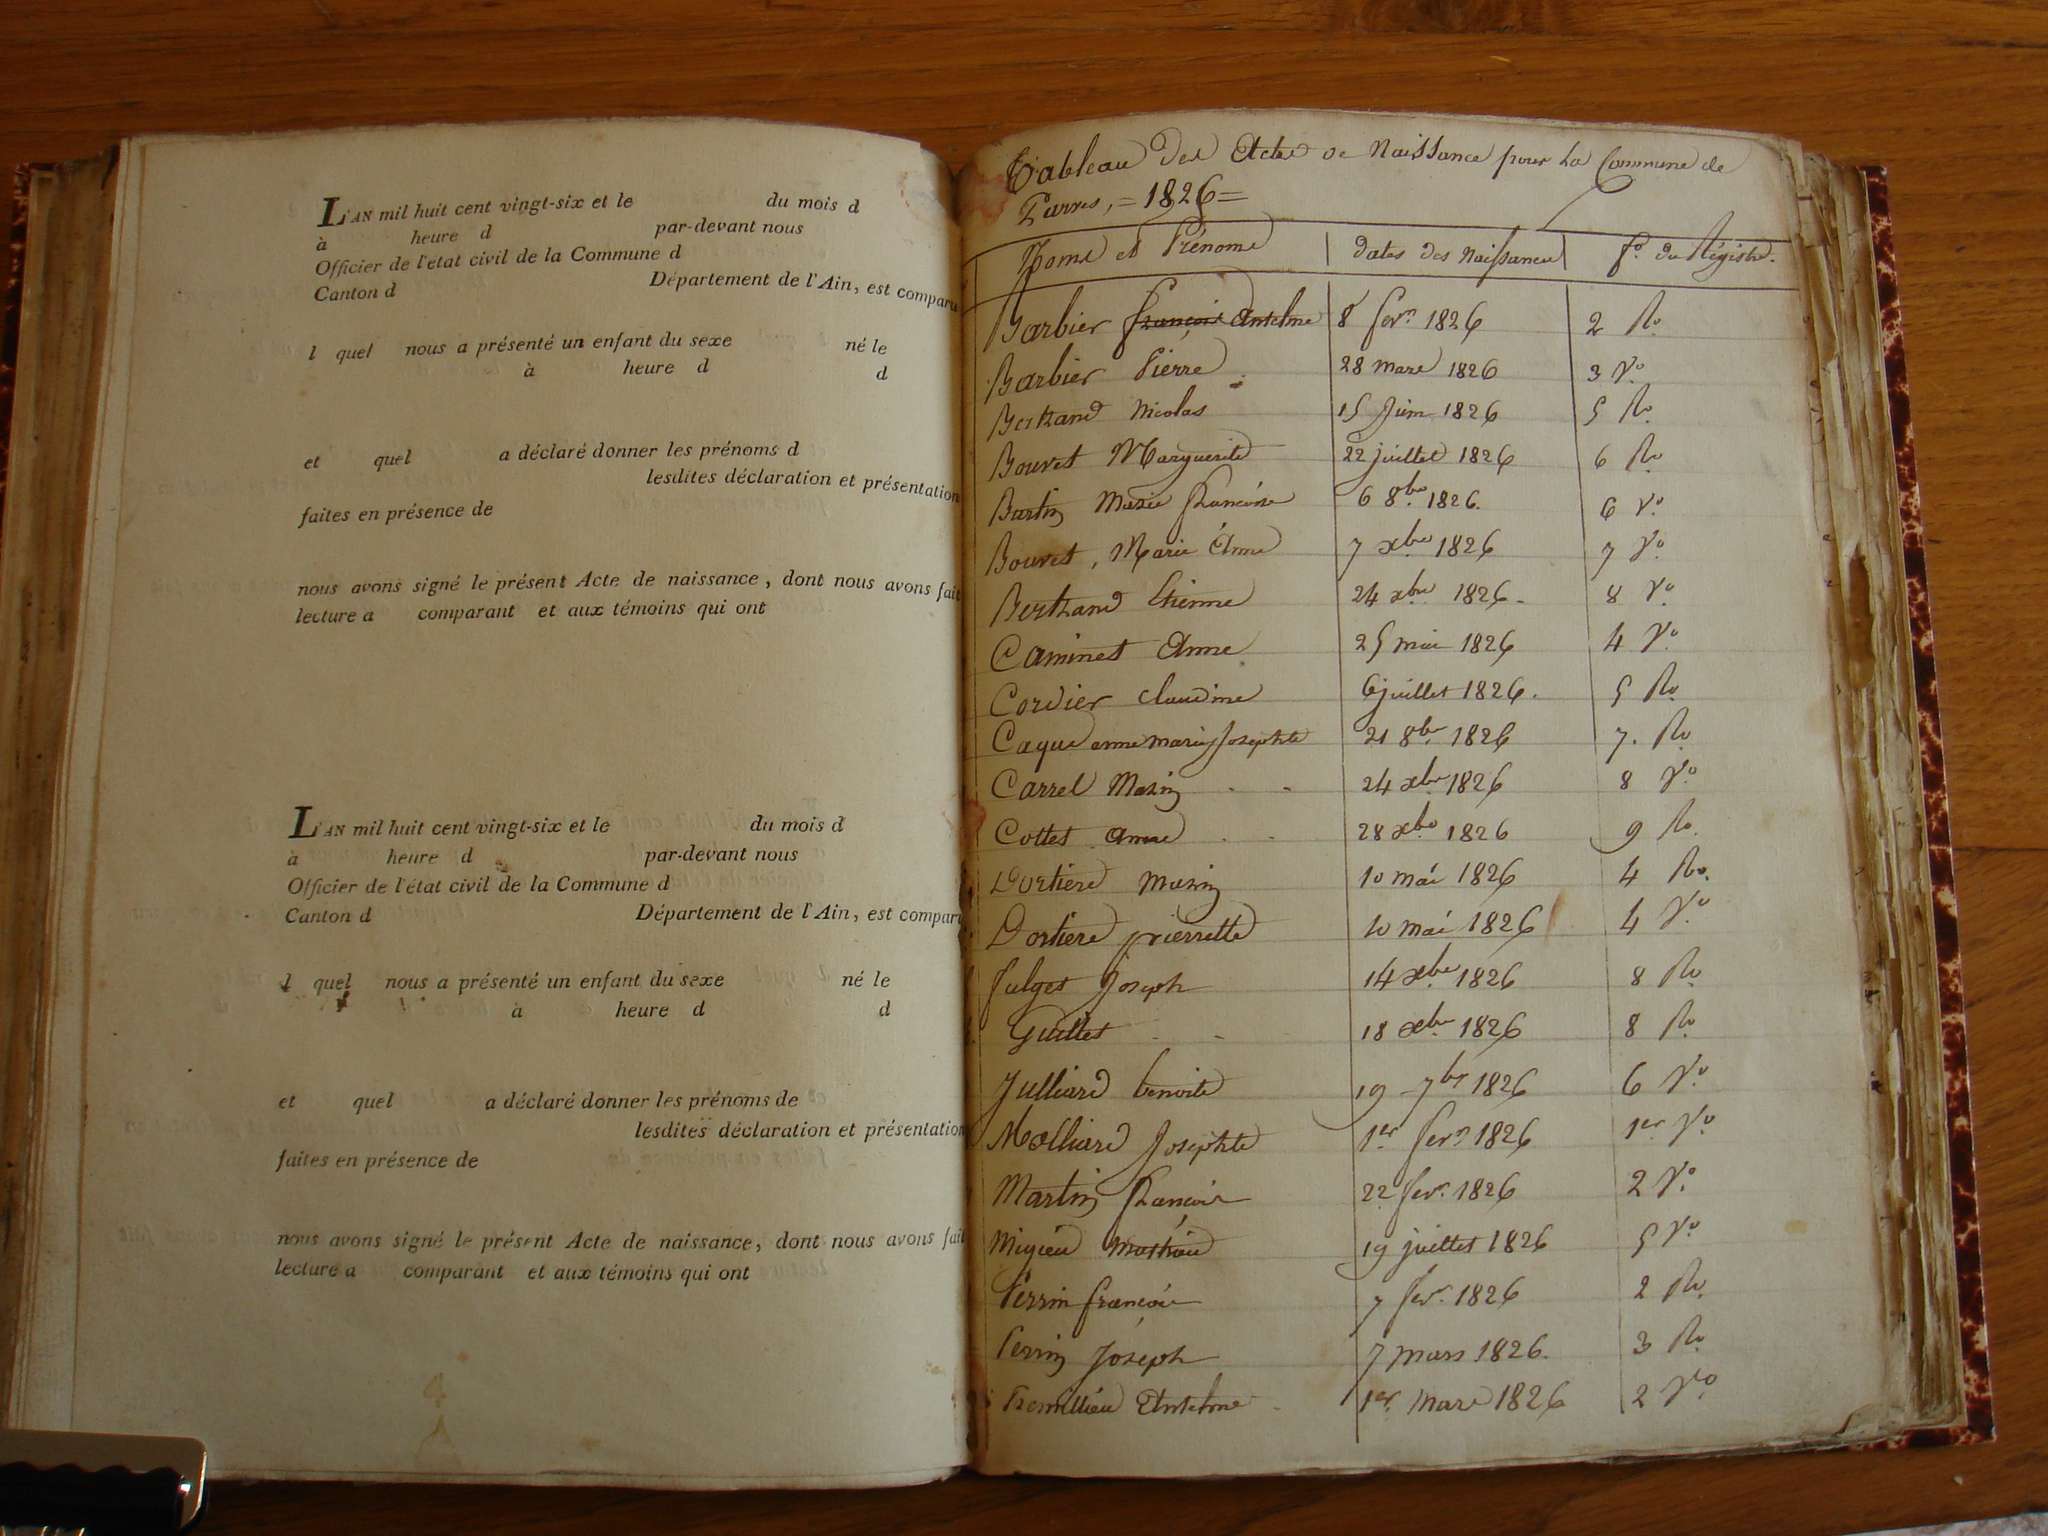 L'AN mil huit cent vingt-six et le du mois d
à heure d par-devant nous
Officier de l'état civil de la Commune d
Canton d Département de l'Ain, est comparu
l quel nous a présenté un enfant du sexe né le
à heure d d
et quel a déclaré donner les prénoms d
lesdites déclaration et présentation
faites en présence de
nous avons signé le présent Acte de naissance, dont nous avons fait
lecture a comparant et aux témoins qui ont
L'AN mil huit cent vingt-six et le du mois d
à heure d par-devant nous
Officier de l'état civil de la Commune d
Canton d Département de l'Ain, est comparu
l quel nous a présenté un enfant du sexe né le
à heure d d
et quel a déclaré donner les prénoms de
lesdites déclaration et présentation
faites en présence de
nous avons signé le présent Acte de naissance, dont nous avons fait
lecture a comparant et aux témoins qui ont
Tableau des Actes de Naissance pour la Commune de
Parves, = 1826 =
Noms et Prénoms dates des Naissances f.o du Régistre.
Barbier françois Antelme 8 fevr. 1826 2 Ro
Barbier Pierre 28 mars 1826 3 Vo
Bertrand Nicolas 15 Juin 1826 5 Ro
Bouvet Marguerite 22 juillet 1826 6 Ro
Burtin Marie françoise 6 8bre 1826. 6 Vo
Bouvet, Marie Anne 7 xbre 1826 7 Vo
Bertrand Etienne 24 xbre 1826 8 Vo
Caminet Anne 25 mai 1826 4 Vo
Cordier claudine 6 juillet 1826. 5 Ro
Caque anne marie Josephte 21 8bre 1826 7. Ro
Carrel Marin 24 xbre 1826 8 Vo
Cottet anne 28 xbre 1826 9 Ro
Dortiere Marin 10 mai 1826 4 Ro.
Dortiere pierrette 10 mai 1826 4 Vo
fulget Joseph 14 xbre 1826 8 Ro
Guillet 18 xbre 1826 8 Ro
Julliard benoite 19 7bre 1826 6 Vo
Molliard Josephte 1er fevr. 1826 1er Vo
Martin françois 22 fevr. 1826 2 Vo
Migieu Mathieu 19 juillet 1826 5 Vo
Perrin françois 7 fevr. 1826 2 Ro
Perrin Joseph 7 mars 1826. 3 Ro
Antelme 1er mars 1826 2 Vo